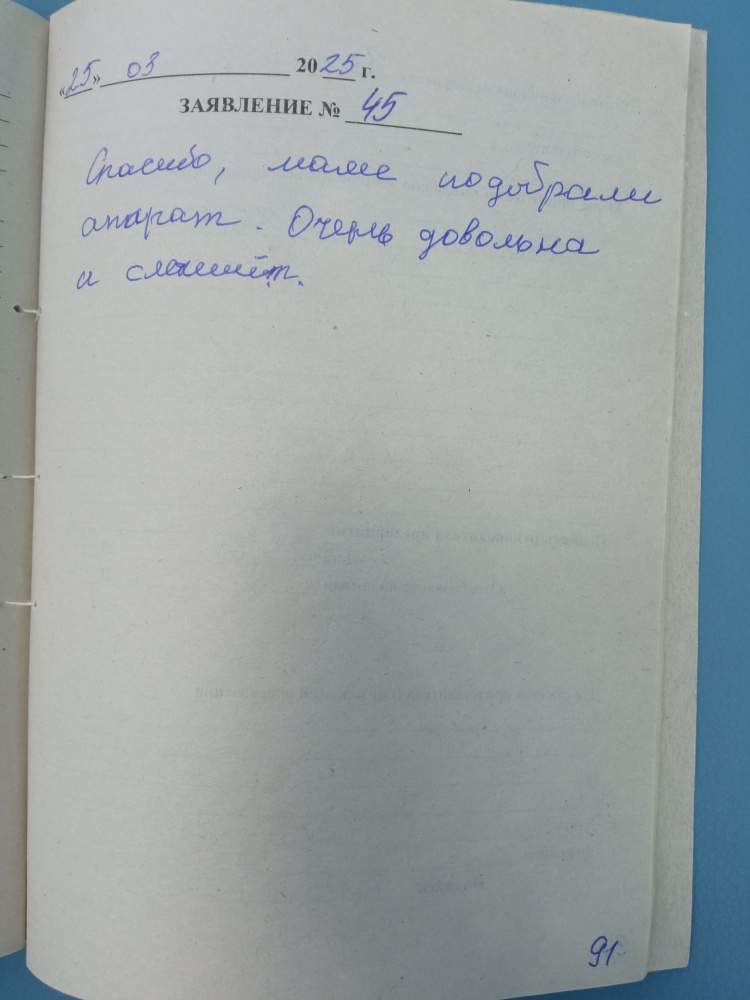 «25» 03 2025 г.
ЗАЯВЛЕНИЕ № 45
Спасибо, маме подобрали
апарат. Очень довольна
и слышит.
91